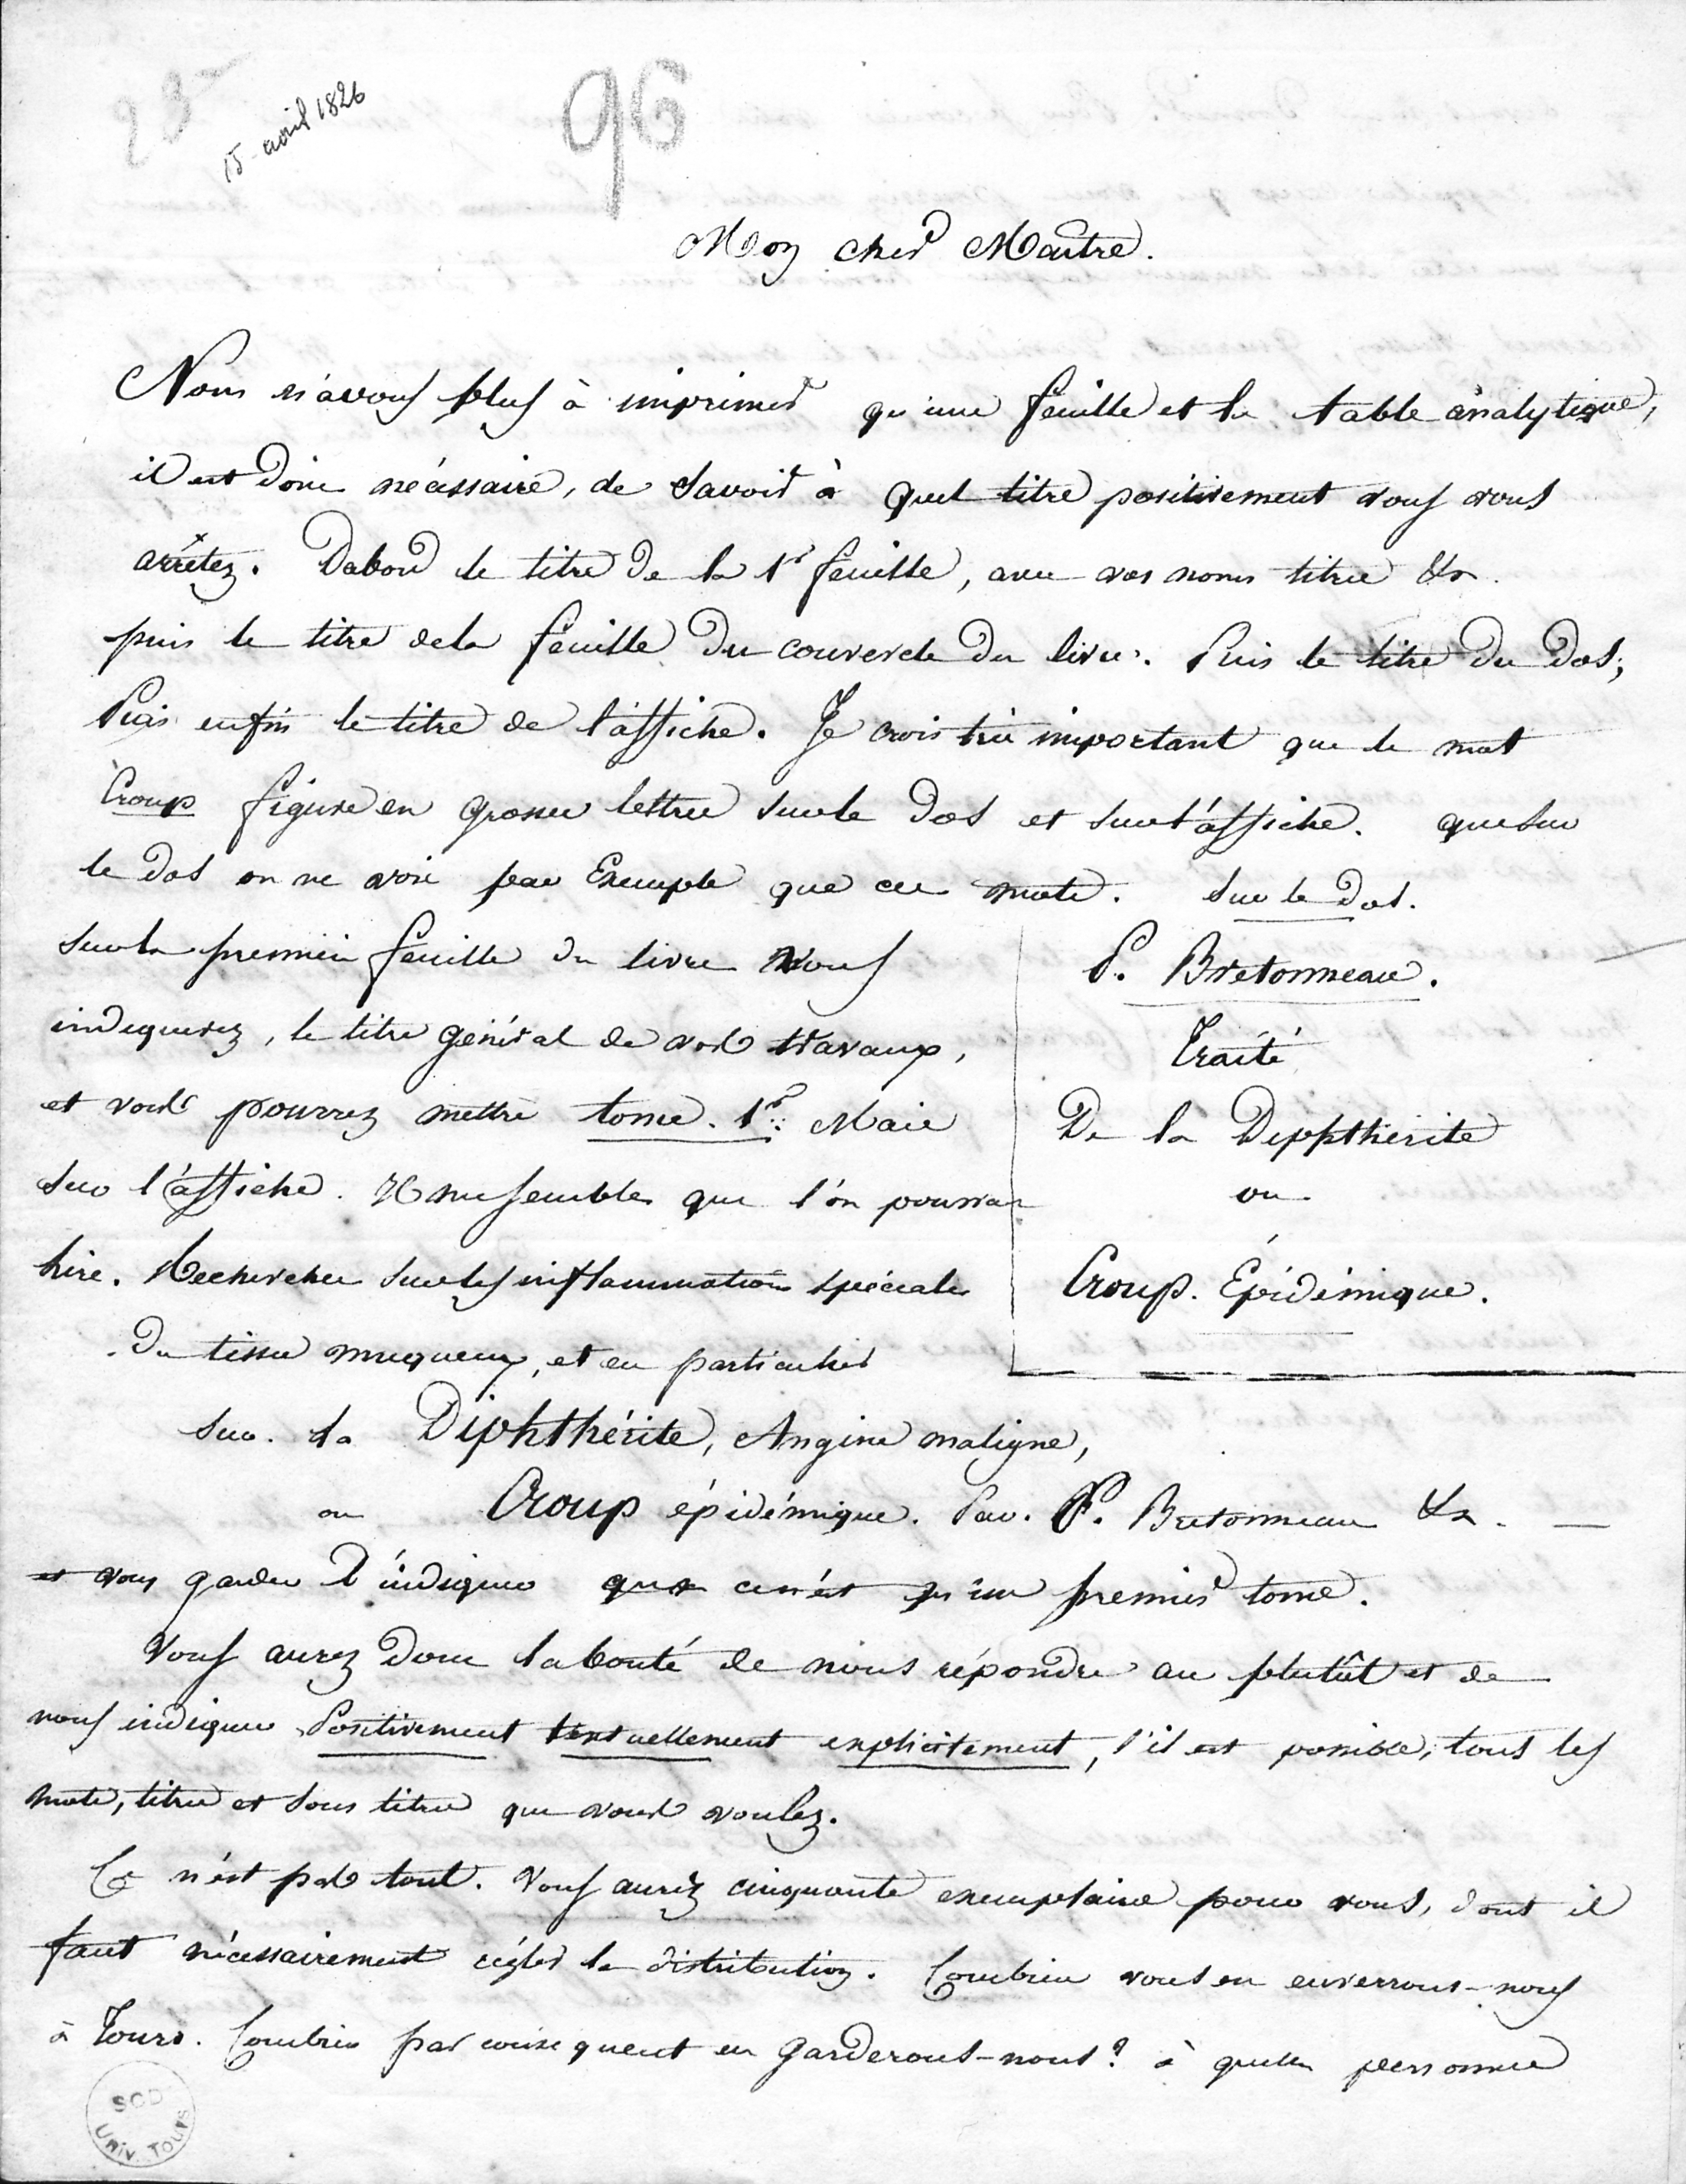 25
15 avril 1826
96
Mon cher Maître.
Nous n'avons plus à imprimer qu'une feuille et la table analytique,
il est donc nécessaire, de savoir à quel titre positivement vous vous
arrêtez. Dabord le titre de la 1re feuille, avec vos noms titres &a.
puis le titre de la feuille du couvercle du livre. Puis le titre du dos,
Puis enfin le titre de l'affiche. Je crois très important que le mot
Croup figure en grosses lettres sur le dos et sur l'affiche. que sur
le dos on ne voie par Exemple que ces mots. Sur le dos.
sur la première feuille du livre vous
indiquerez, le titre général de vos travaux,
et vous pourrez mettre tome. 1er. Mais
sur l'affiche. Il me semble que l'on pourra
lire. Recherches sur les inflammations spéciales
du tissu muqueux, et en particulier
P. Bretonneau.
Traité
De la Dipphthérite
ou
Croup. Épidémique.
sur. la Diphthérite, Angine maligne,
ou Croup épidémique. Par. P. Bretonneau &a. —
et vous garder d'indiquer que ce n'est qu'un premier tome.
Vous aurez donc la bonté de nous répondre au plutôt et de
nous indiquer Positivement textuellement explicitement, s'il est possible, tous les
mots, titres et sous titres que vous voulez.
Ce n'est pas tout. Vous aurez cinquante exemplaires pour vous, dont il
faut nécessairement régler la distribution. Combien vous en enverrons-nous
à Tours. Combien par conséquent en garderons-nous? à quelles personnes
SCD
UNIV. TOURS